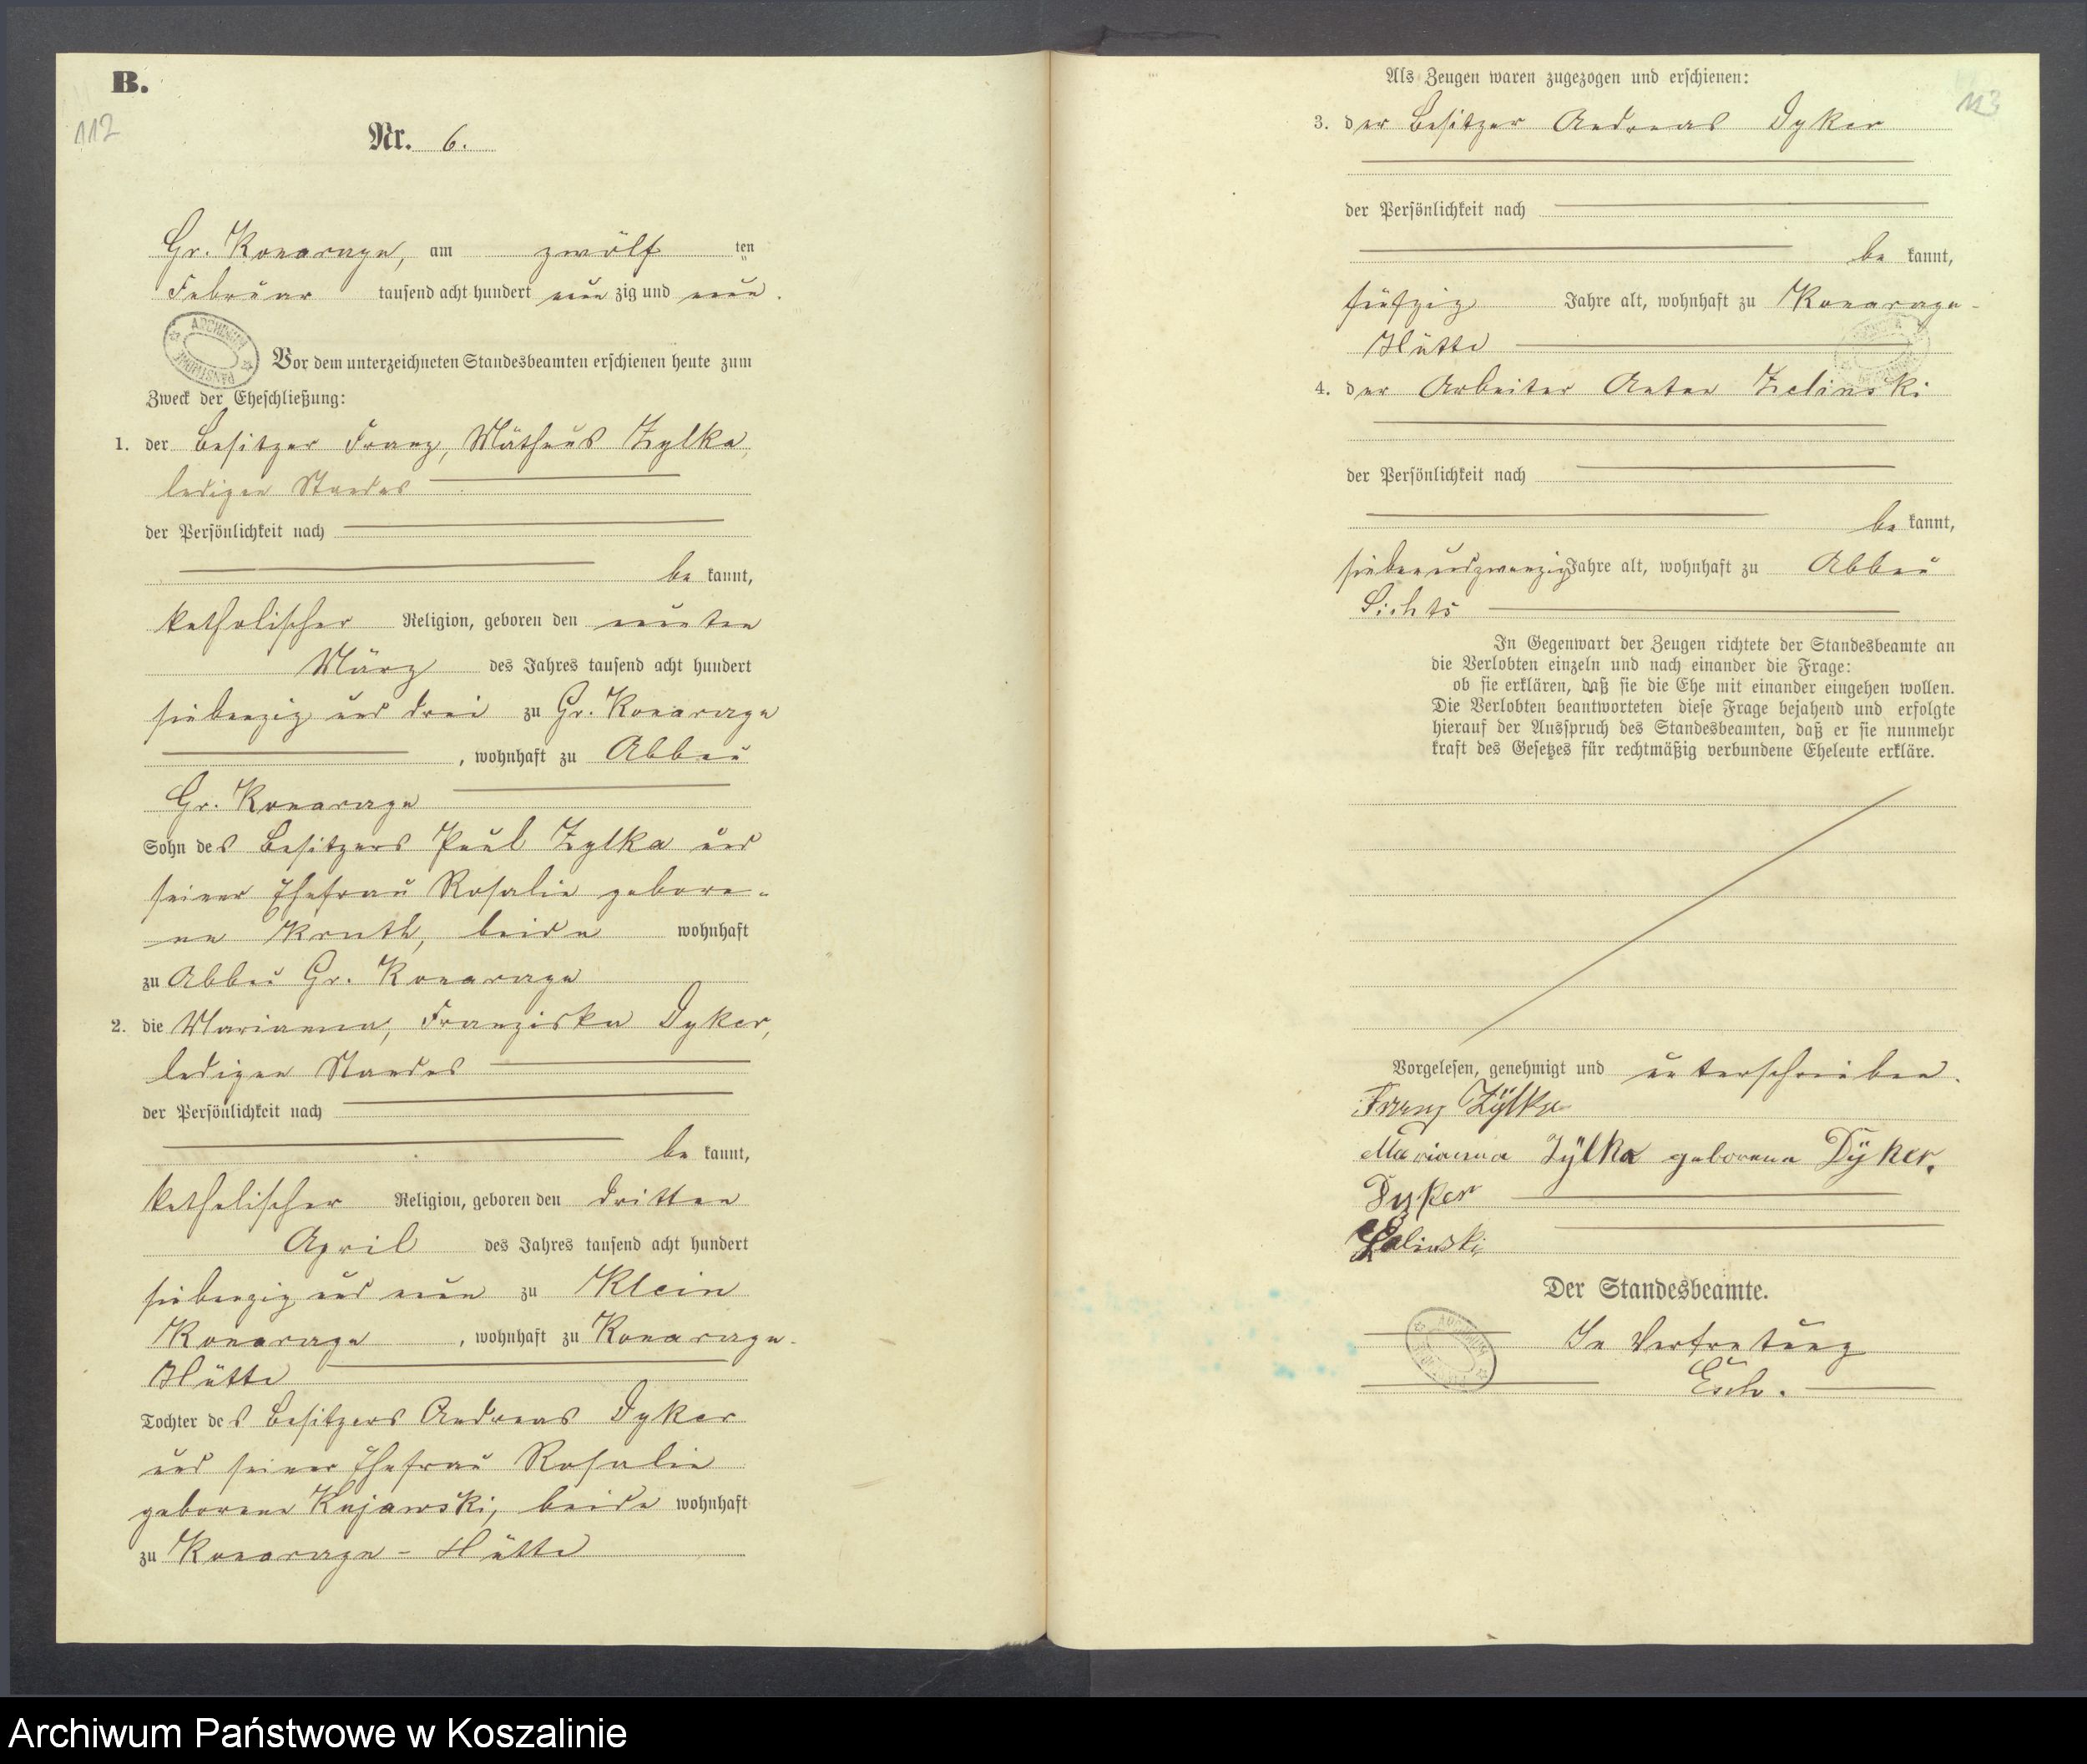 B.
112
Nr. 6.
Gr. Konarczyn, am zwölf ten
Februar tausend acht hundert neun zig und neun.
ARCHIWUM PAŃSTWOWE
Vor dem unterzeichneten Standesbeamten erschienen heute zum
Zweck der Eheschließung:
1. der Besitzer Franz, Mathäus Zylka,
ledigen Standes
der Persönlichkeit nach
be kannt,
katholischer Religion, geboren den neunten
März des Jahres tausend acht hundert
siebenzig und drei zu Gr. Konarczyn
, wohnhaft zu Abbau
Gr. Konarczyn
Sohn des Besitzers Paul Zylka und
seiner Ehefrau Rosalie gebore-
ne Knuth, beide wohnhaft
zu Abbau Gr. Konarczyn
2. die Marianna, Franziska Dyker,
ledigen Standes
der Persönlichkeit nach
be kannt,
katholischer Religion, geboren den dritten
April des Jahres tausend acht hundert
siebenzig und neun zu Klein
Konarczyn, wohnhaft zu Konarczyn-
Hütte
Tochter des Besitzers Andreas Dyker
und seiner Ehefrau Rosalie
geborene Kujawski, beide wohnhaft
zu Konarczyn - Hütte
113
Als Zeugen waren zugezogen und erschienen:
3. der Besitzer Andreas Dyker
der Persönlichkeit nach
be kannt,
fünfzig Jahre alt, wohnhaft zu Konarczyn-
Hütte
4. der Arbeiter Anton Zielinski
der Persönlichkeit nach
be kannt,
siebenundzwanzig Jahre alt, wohnhaft zu Abbau
Sichts
In Gegenwart der Zeugen richtete der Standesbeamte an
die Verlobten einzeln und nach einander die Frage:
ob sie erklären, daß sie die Ehe mit einander eingehen wollen.
Die Verlobten beantworteten diese Frage bejahend und erfolgte
hierauf der Ausspruch des Standesbeamten, daß er sie nunmehr
kraft des Gesetzes für rechtmäßig verbundene Eheleute erkläre.
Vorgelesen, genehmigt und unterschrieben.
Franz Zÿlka
Marianna Zÿlka geborene Dÿker.
Dyker
Der Standesbeamte.
In Vertretung
Esch.
ARCHIWUM PAŃSTWOWE
Archiwum Państwowe w Koszalinie